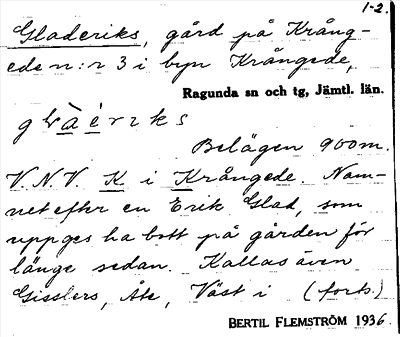 1-2.
Gladeriks, gård på Krång-
ede n:r 3 i byn Krångede,
Ragunda sn och tg, Jämtl. län.
Belägen 900 m.
V.N.V. K i Krångede. Nam-
net efter en Erik Glad, som
uppges ha bott på gården för
länge sedan. Kallas även
Gisslers, Åte, Väst i (forts.)
BERTIL FLEMSTRÖM 1936.